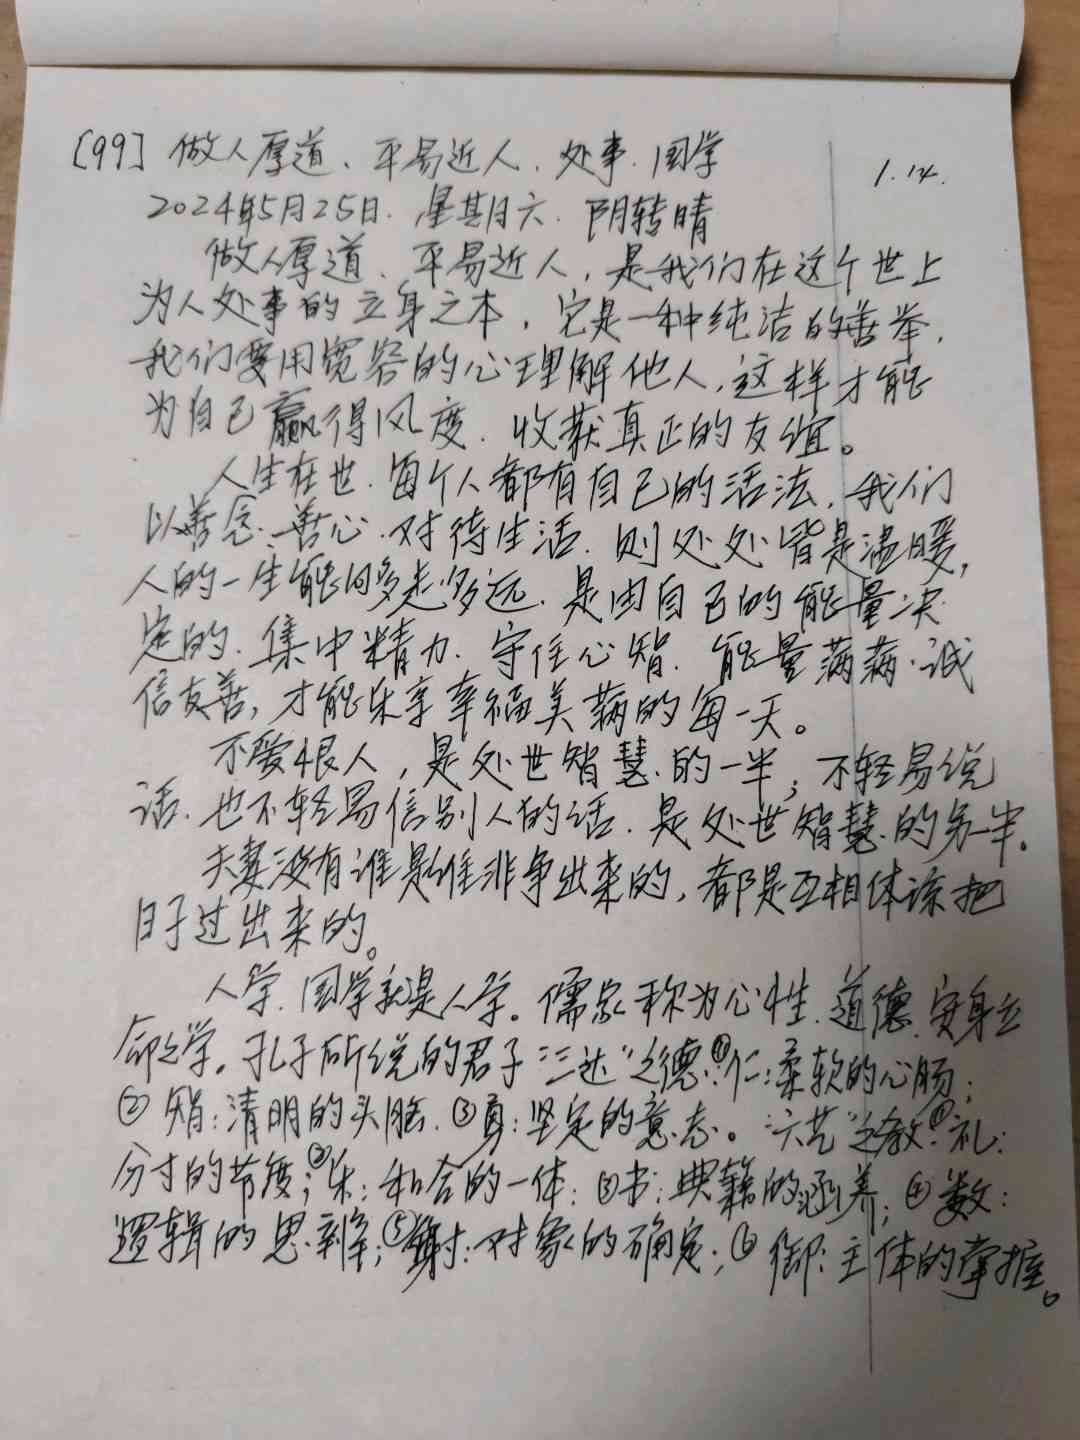 [99] 做人厚道、平易近人、处事、国学
1.14.
2024年5月25日. 星期六. 阴转晴
做人厚道、平易近人，是我们在这个世上
为人处事的立身之本，它是一种纯洁的善举，
我们要用宽容的心理解他人，这样才能
为自己赢得风度、收获真正的友谊。
人生在世、每个人都有自己的活法，我们
以善念、善心、对待生活、则处处皆是温暖，
人的一生能向多走多远、是由自己的能量决
定的、集中精力、守住心智、能量满满、诚
信友善，才能乐享幸福美满的每一天。
不爱恨人，是处世智慧的一半；不轻易说
话、也不轻易信别人的话、是处世智慧的另一半。
夫妻没有谁是谁非争出来的，都是互相体谅把
日子过出来的。
人学、国学就是人学。儒家称为心性、道德、安身立
命之学。孔子所说的君子"三达"之德:①仁:柔软的心肠；
②智:清明的头脑、③勇:坚定的意志。"六艺"之教:①礼:
分寸的节度；②乐:和合的一体；③书:典籍的涵养；④数:
逻辑的思辨；⑤射:对象的确定；⑥御:主体的掌握。